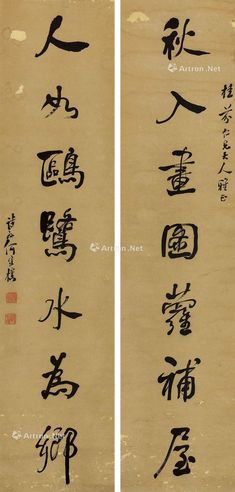 秋入畫圖蘿補屋
桂芬仁兄大人雅正
人如鷗鷺水為鄉
Artron.Net
Artron.Net
Artron.Net
Artron.Net